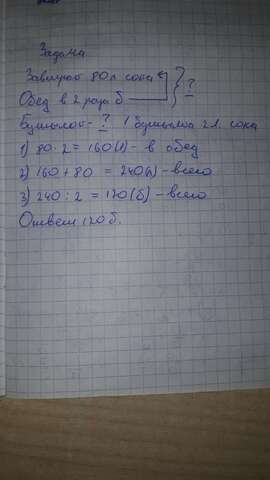 Задача
Завтрак 80 л сока
Обед в 2 раза б. ?
Бутылок - ? 1 бутылка 2 л. сока
1) 80 · 2 = 160 (л) - в обед
2) 160 + 80 = 240 (л) - всего
3) 240 : 2 = 120 (б) - всего
Ответ 120 б.